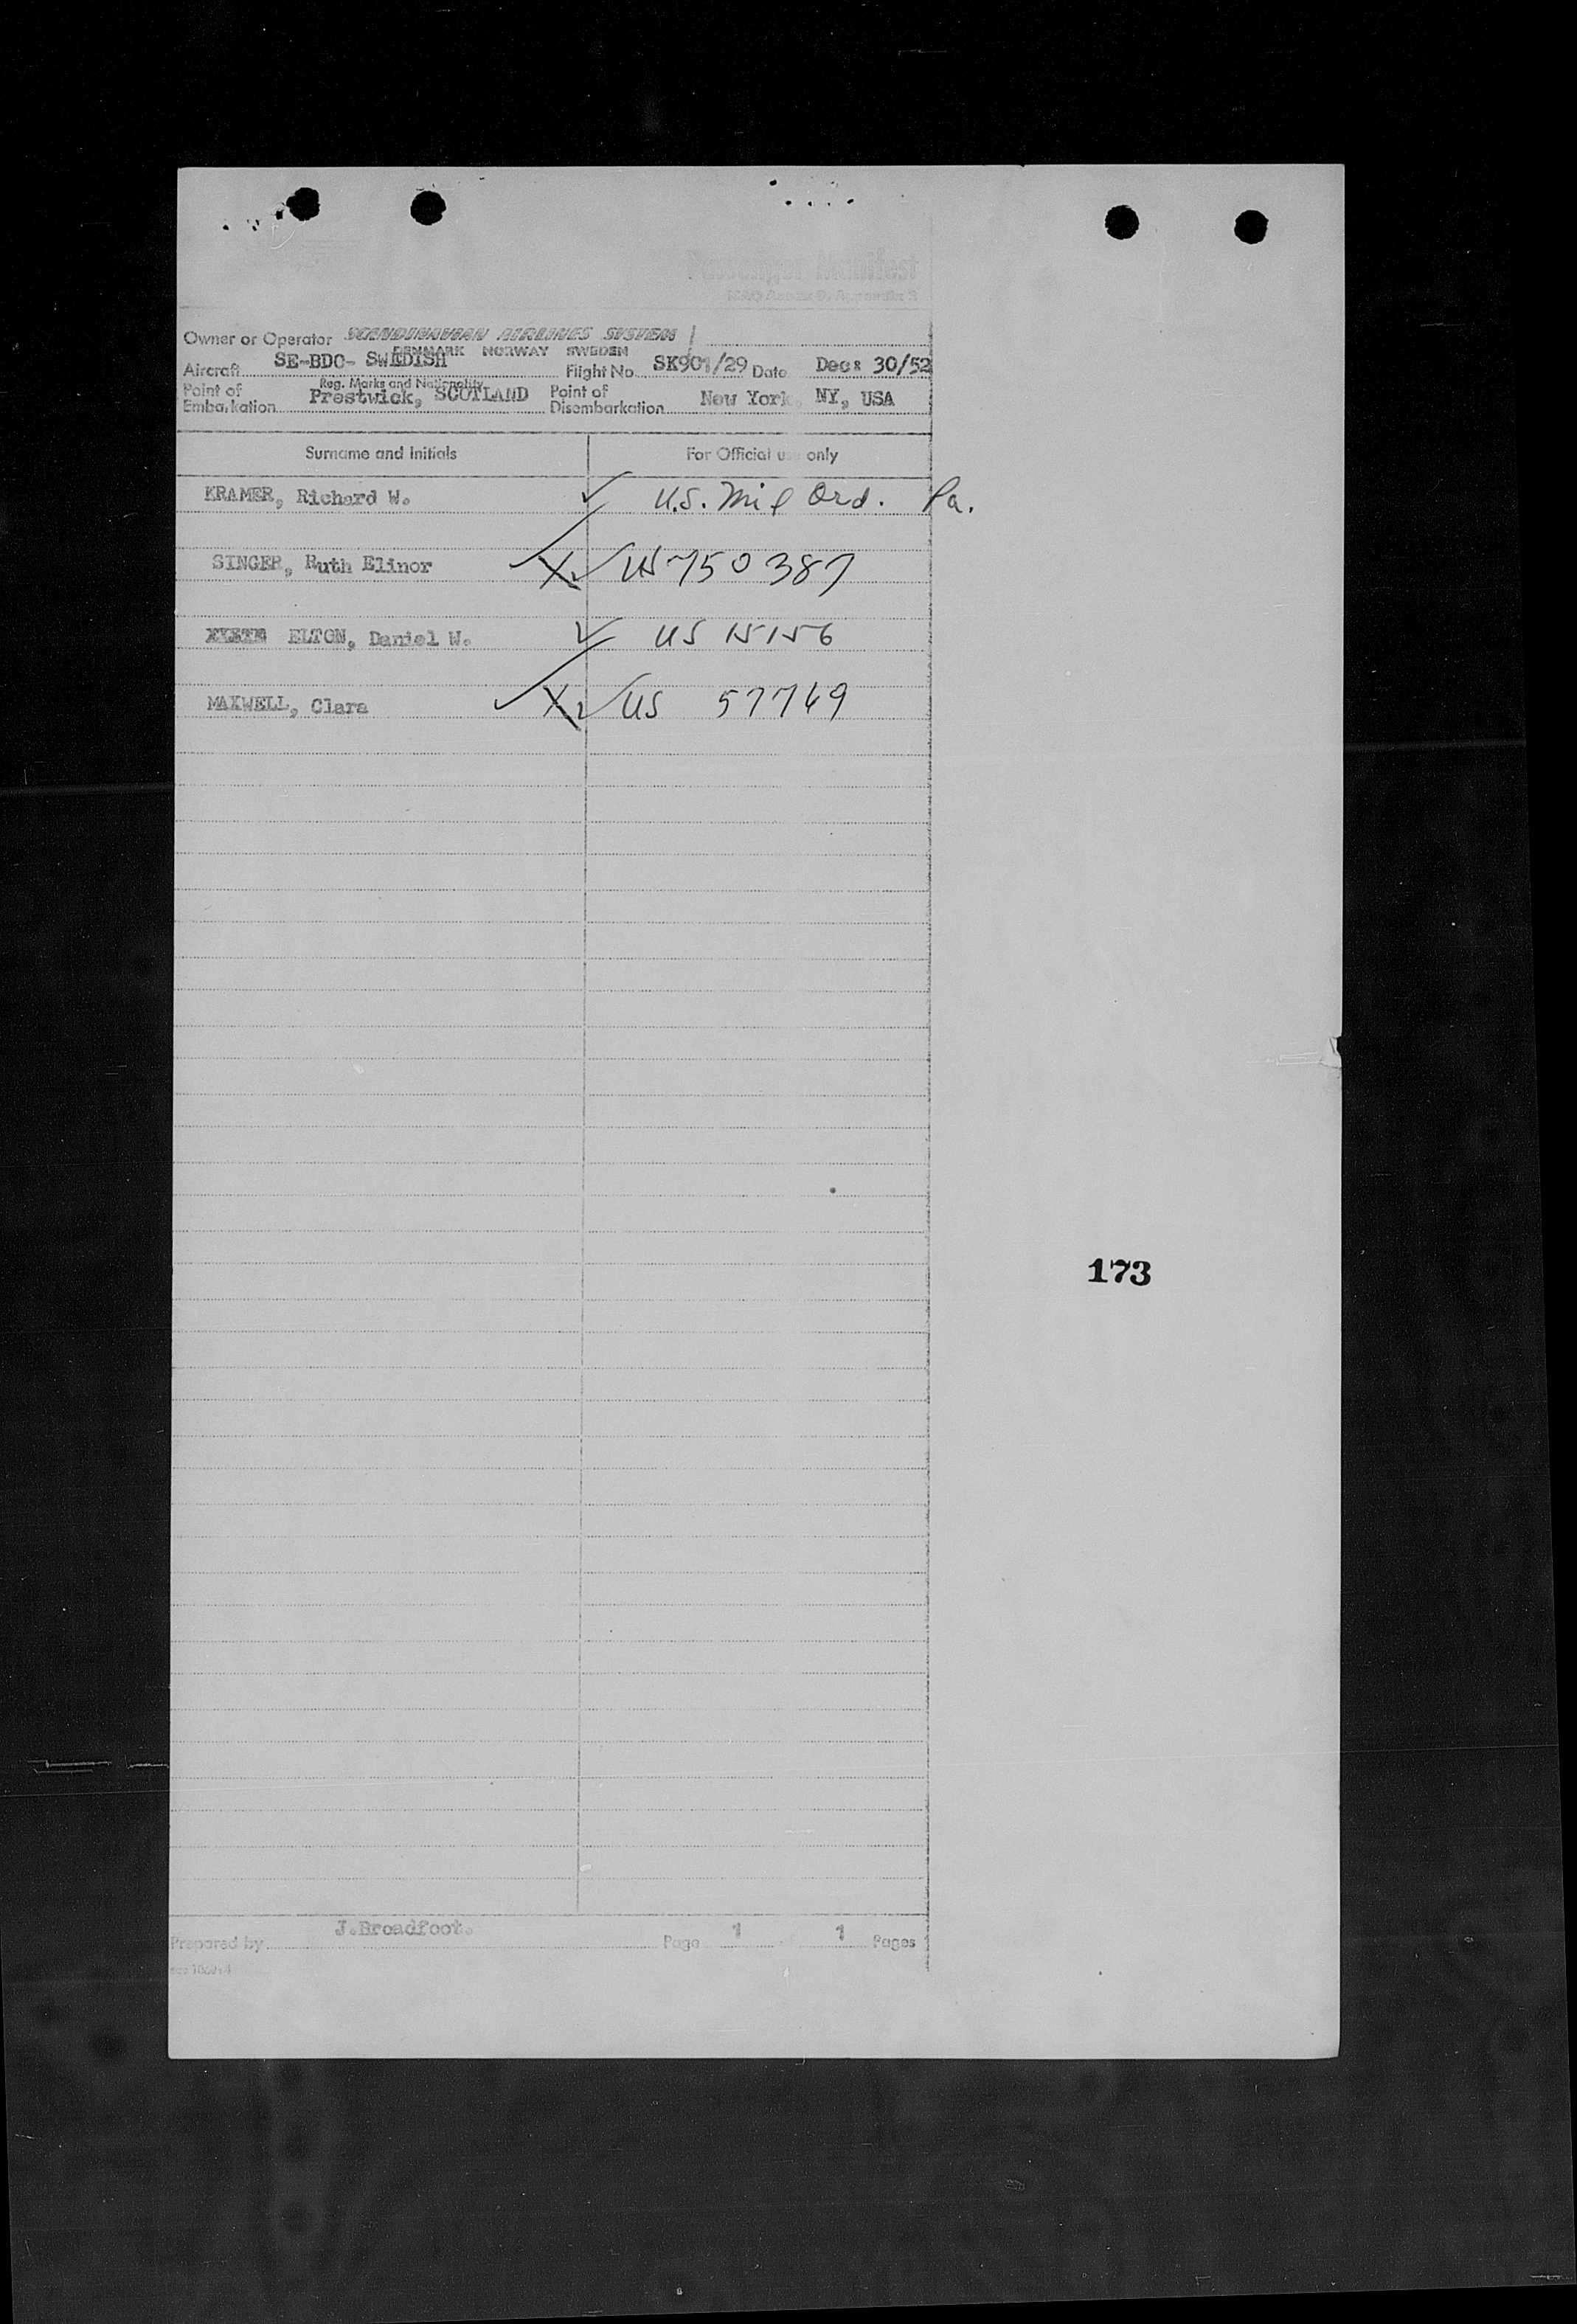 Passenger Manifest
ICAO Annex 9, Appendix 3
Owner or Operator SCANDINAVIAN AIRLINES SYSTEM
DENMARK NORWAY SWEDEN
Aircraft SE-BDO- SWEDISH Flight No. SK901/29 Date Dec: 30/52
Reg. Marks and Nationality
Point of Embarkation Prestwick, SCOTLAND Point of Disembarkation New York, NY, USA
Surname and initials For Official use only
KRAMER, Richard W. ✓ U.S. Mil Ord. Pa.
SINGER, Ruth Elinor ✓ X ✓ US 750387
ELTON, Daniel W. ✓ US 15156
MAXWELL, Clara ✓ X ✓ US 57769
173
J.Broadfoot.
Prepared by Page 1 1 Pages